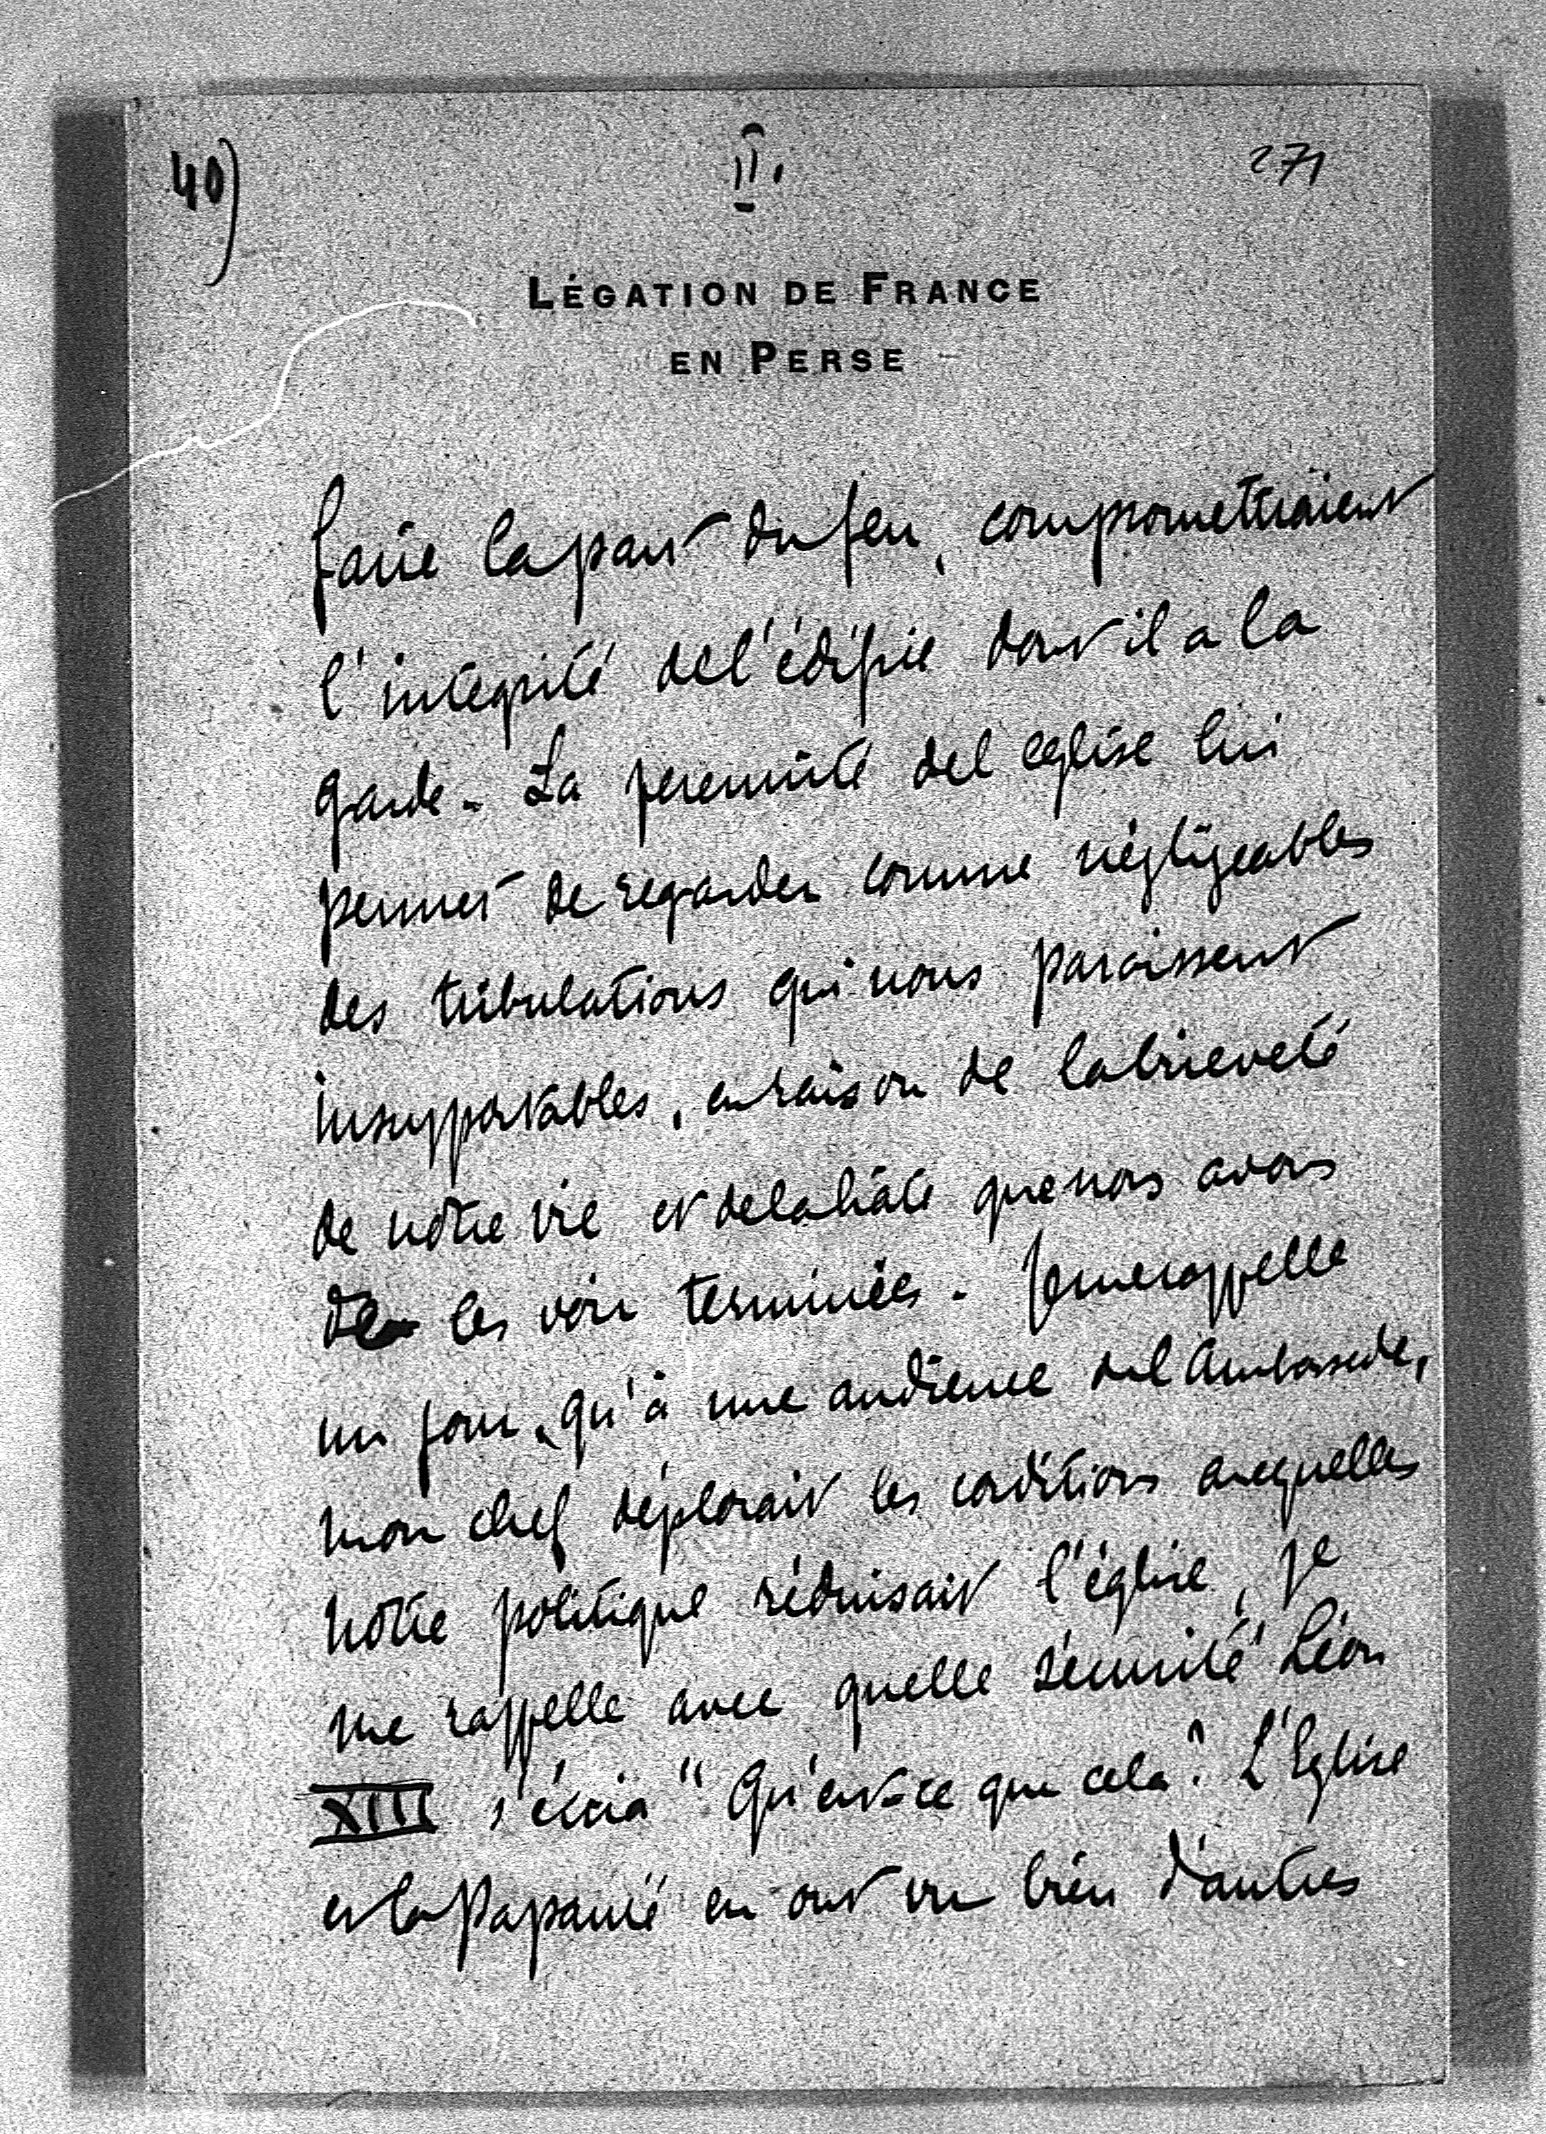 40)
II.
271
LÉGATION DE FRANCE
EN PERSE
faire la part du feu, compromettraient
l'intégrité de l'édifice dont il a la
garde. La perennité de l'eglise lui
permet de regarder comme négligeables
des tribulations qui nous paroissent
insupportables, en raison de la brieveté
de notre vie et de la hâte que nous avons
de les voir terminées. Je me rappelle
un jour, qu'à une audience de l'Ambassade,
mon chef déplorait les conditions auxquelles
notre politique réduisait l'église, je
me rappelle avec quelle sécurité Léon
XIII s'écria "Qu'est-ce que cela? L'Eglise
et la Papauté en ont vu bien d'autres